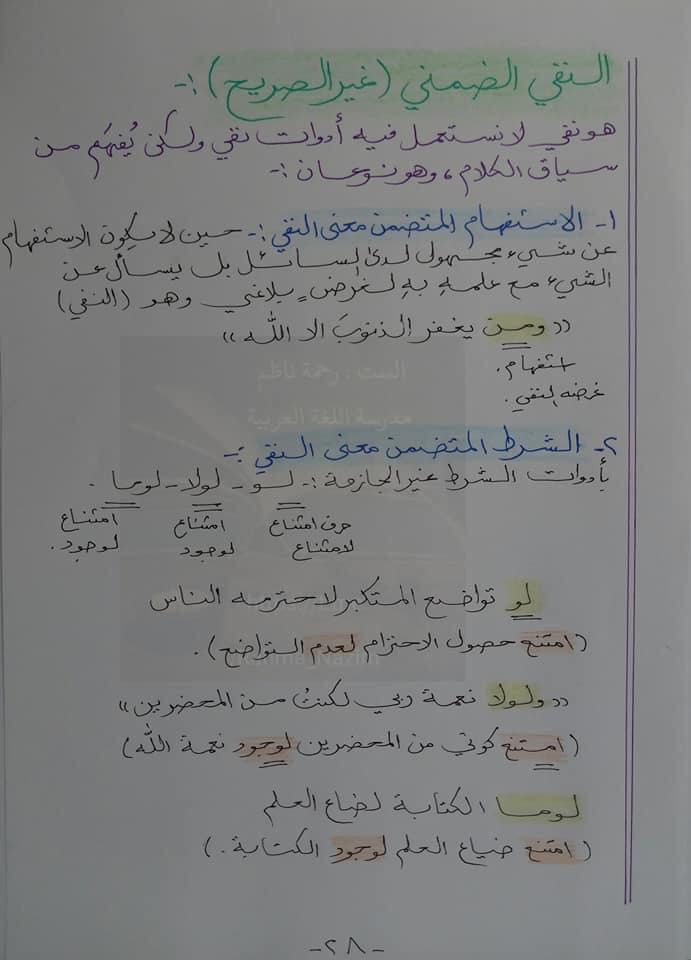 النفي الضمني (غير الصريح) :-
هو نفي لا نستعمل فيه أدوات نفي ولكن يُفهَم من
سياق الكلام ، وهو نوعان :-
١- الاستفهام المتضمن معنى النفي :- حين لا يكون الاستفهام
عن شيء مجهول لدى السائل بل يسأل عن
الشيء مع علمهِ بهِ لغرضٍ بلاغي وهو (النفي)
(( ومن يغفر الذنوبَ الا الله ))
استفهام .
غرضه النفي .
الست : رحمة ناظم
مدرسة اللغة العربية
٢- الشرط المتضمن معنى النفي :-
بأدوات الشرط غير الجازمة :- لو - لولا - لوما .
حرف امتناع لامتناع
امتناع لوجود
امتناع لوجود .
لو تواضع المتكبر لاحترمه الناس
( امتنع حصول الاحترام لعدم التواضع ) .
Rahma_Nazim
(( ولولا نعمة ربي لكنتُ من المحضرين ))
( امتنع كوني من المحضرين لوجود نعمة الله )
لوما الكتابة لضاع العلم
( امتنع ضياع العلم لوجود الكتابة . )
-٢٨-